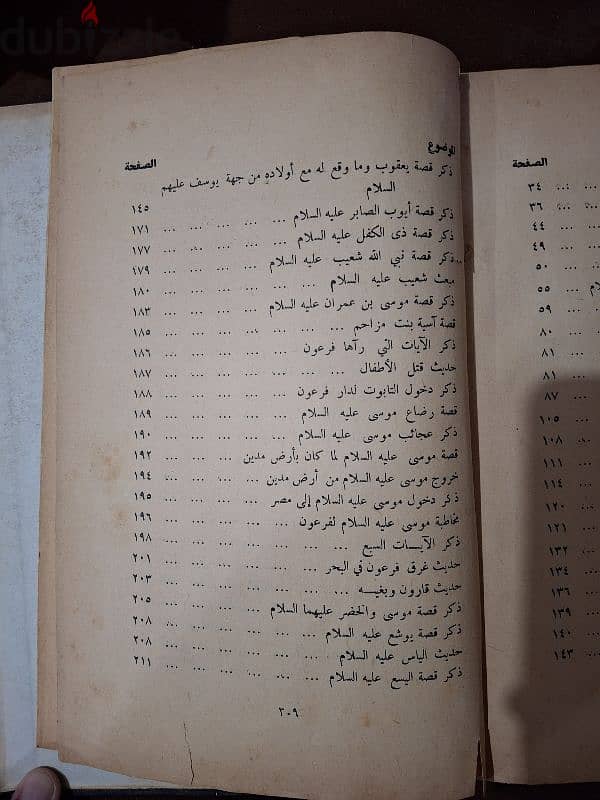 dubizzle
الموضوع الصفحة
ذكر قصة يعقوب وما وقع له مع أولاده من جهة يوسف عليهم
السلام ١٤٥
ذكر قصة أيوب الصابر عليه السلام ... ... ... ... ... ١٧١
ذكر قصة ذى الكفل عليه السلام ... ... ... ... ... ١٧٧
ذكر قصة نبي الله شعيب عليه السلام ... ... ... ... ... ٤٧٩
مبعث شعيب عليه السلام ... ... ... ... ... ... ١٨٠
ذكر قصة موسى بن عمران عليه السلام ... ... ... ... ١٨٣
قصة آسية بنت مزاحم ... ... ... ... ... ... ١٨٥
ذكر الآيات التي رآها فرعون ... ... ... ... ... ١٨٦
حديث قتل الأطفال ... ... ... ... ... ... ١٨٧
ذكر دخول التابوت لدار فرعون ... ... ... ... ... ١٨٨
قصة رضاع موسى عليه السلام ... ... ... ... ... ١٨٩
ذكر عجائب موسى عليه السلام ... ... ... ... ... ١٩٠
قصة موسى عليه السلام لما كان بأرض مدين ... ... ... ١٩٢
خروج موسى عليه السلام من أرض مدين ... ... ... ... ١٩٤
ذكر دخول موسى عليه السلام إلى مصر ... ... ... ... ١٩٥
مخاطبة موسى عليه السلام لفرعون ... ... ... ... ... ١٩٦
ذكر الآيـــات السبع ... ... ... ... ... ... ١٩٨
حديث غرق فرعون في البحر ... ... ... ... ... ٢٠١
حديث قارون وبغيـــه ... ... ... ... ... ... ٢٠٣
ذكر قصة موسى والخضر عليهما السلام ... ... ... ... ٢٠٥
ذكر قصة يوشع عليه السلام ... ... ... ... ... ٢٠٨
حديث الياس عليه السلام ... ... ... ... ... ... ٢٠٨
ذكر قصة اليسع عليه السلام ... ... ... ... ... ٢١١
٣٠٩
الصفحة
... ... ٣٤
... ... ٣٦
... ... ٤٤
... ... ٤٩
... ... ٥٠
... ٥٥
... ... ٥٩
... ... ٨٠
... ... ٨١
... ... ٨١
... ... ٨٧
... ... ١٠٥
... ... ١٠٨
... ... ١١١
... ... ١١٤
... ... ١٢٠
... ... ١٢١
... ... ١٣٢
... ... ١٣٤
... ... ١٣٦
... ... ١٣٩
... ... ١٤٠
... ... ١٤٣